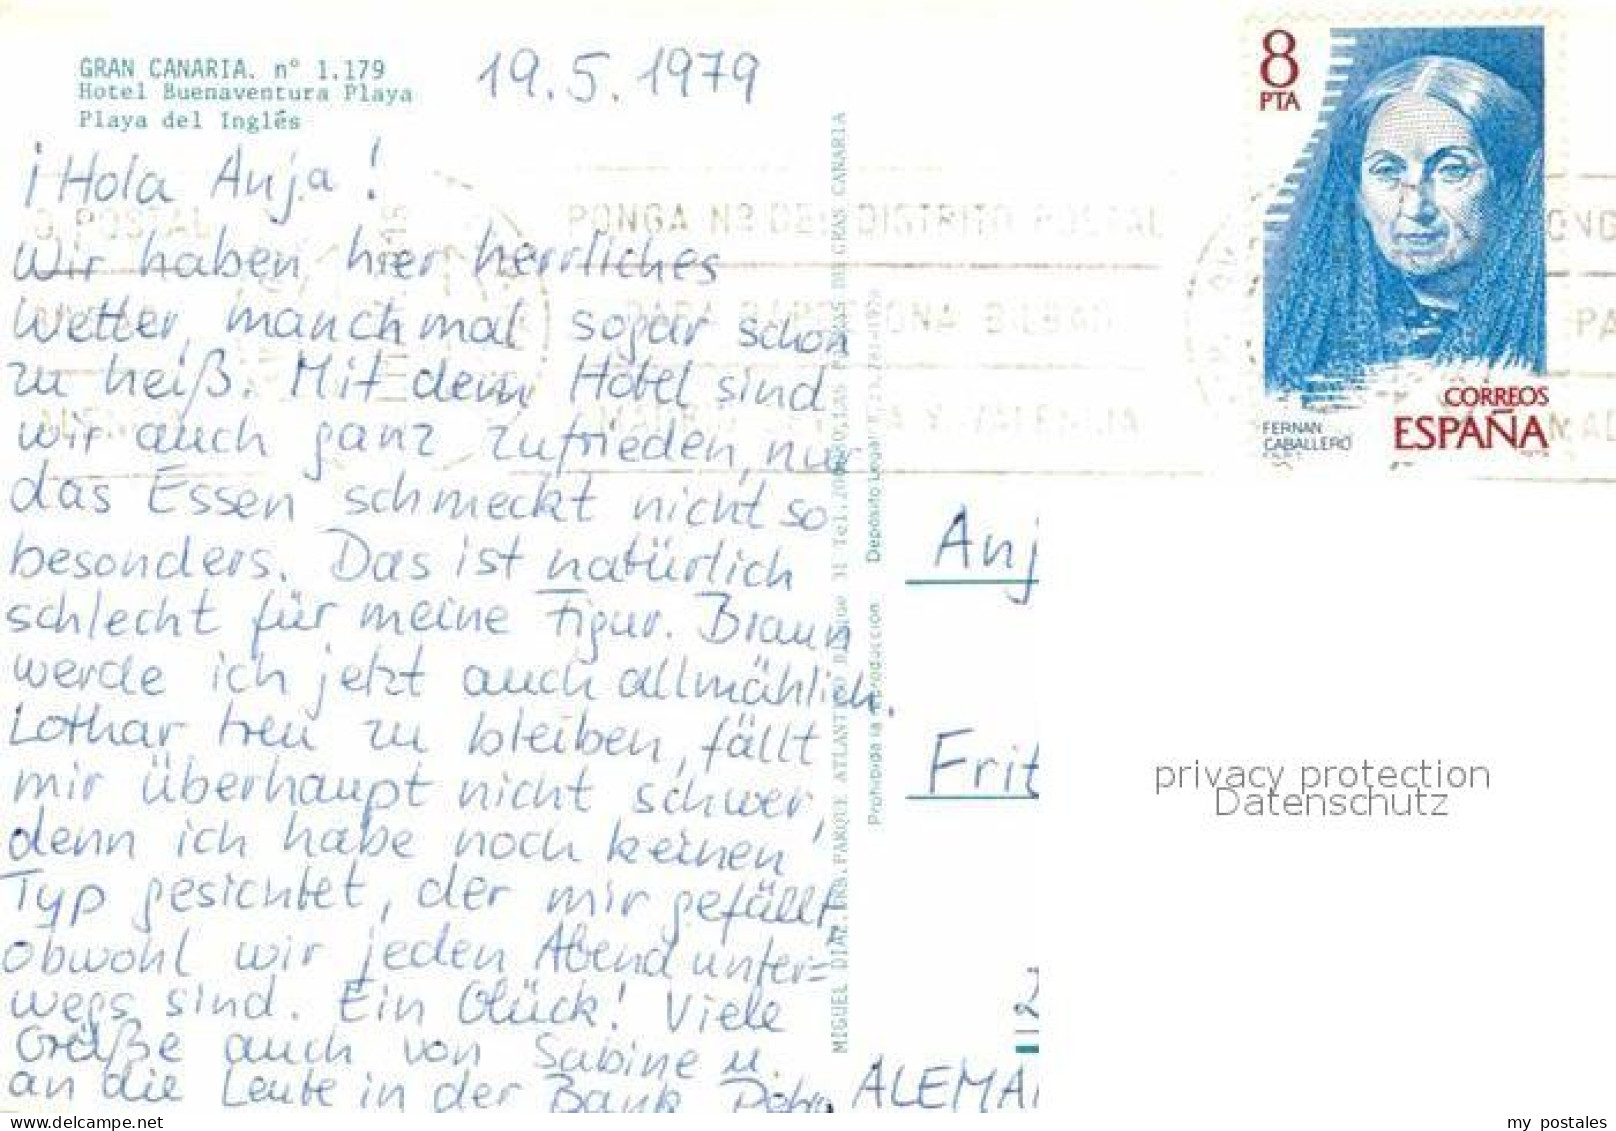 GRAN CANARIA. nº 1.179
Hotel Buenaventura Playa
Playa del Inglés
19.5.1979
¡Hola Anja!
Wir haben hier herrliches
Wetter, manchmal sogar schon
zu heiß. Mit dem Hotel sind
wir auch ganz zufrieden, nur
das Essen schmeckt nicht so
besonders. Das ist natürlich
schlecht für meine Figur. Braun
werde ich jetzt auch allmählich.
Lothar treu zu bleiben, fällt
mir überhaupt nicht schwer,
denn ich habe noch keinen
Typ gesichtet, der mir gefällt
obwohl wir jeden Abend unter=
wegs sind. Ein Glück! Viele
Grüße auch von Sabine u.
an die Leute in der Bank
MIGUEL DIAZ. URB. PARQUE ATLANTICO
31 Tel.
LAS PALMAS DE GRAN CANARIA
Prohibida la reproducción
Depósito Legal
O POSTAL
PONGA Nº DEL DISTRITO POSTAL
PARA BARCELONA BILBAO
MADRID Y VALENCIA
8
PTA
FERNAN
CABALLERO
CORREOS
ESPAÑA
Anj
Frit
2
ALEMA
privacy protection
Datenschutz
www.delcampe.net
my_postales